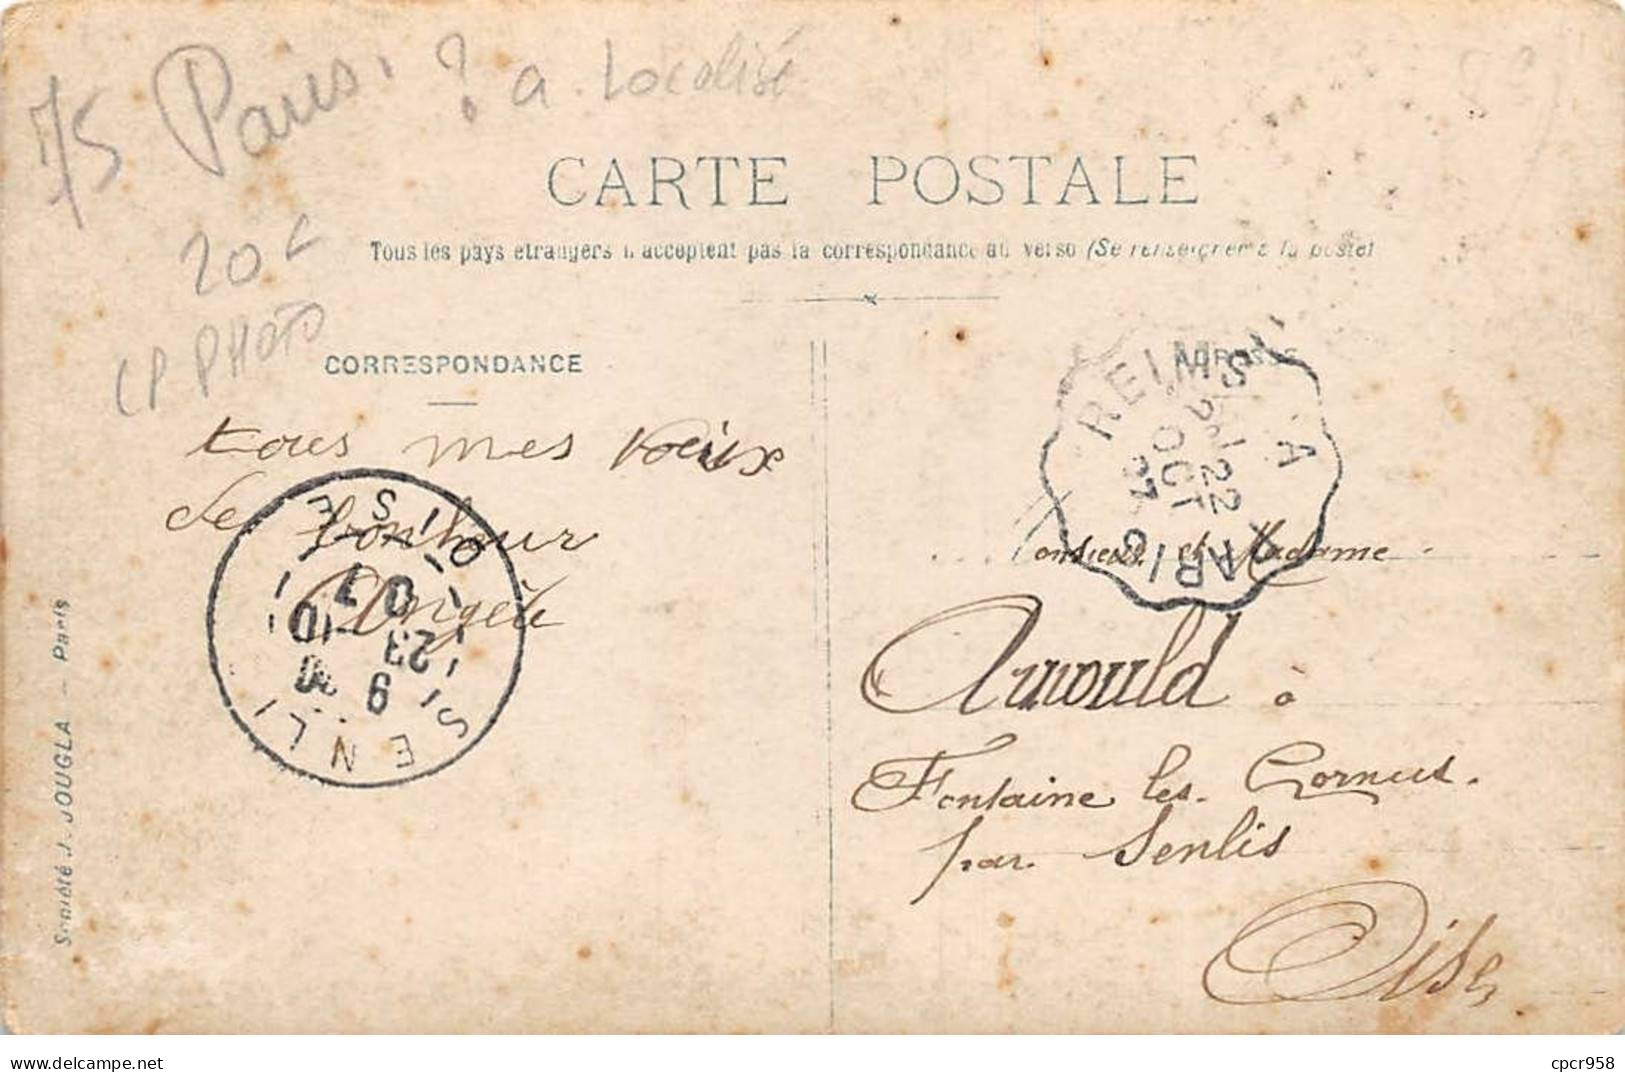 75 Paris. ? a Localisé
20 c
CP PHOTO
CARTE POSTALE
Tous les pays étrangers n'acceptent pas la correspondance au verso (Se renseigner à la poste)
CORRESPONDANCE
ADRESSE
tous mes voeux
de bonheur
Angèle
REIMS A PARIS
22 OCT 07
SENLIS OISE
9 23 10 07
Monsieur et Madame
Arnould à
Fontaine les Cornus.
par Senlis
Oise
Société J. JOUGLA — Paris
delcampe.net
cpcr958